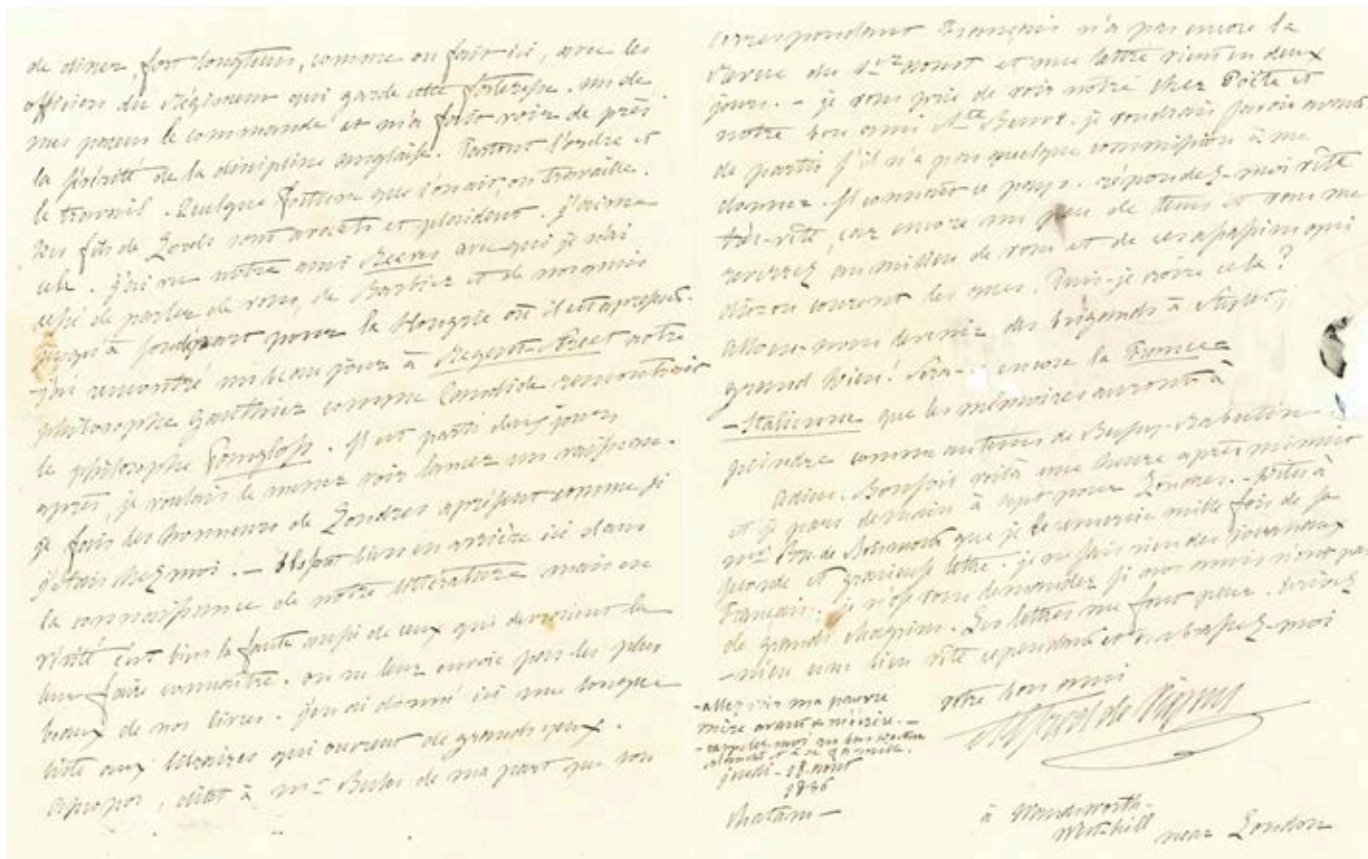 de diner, fort longtems, comme on fait ici, avec les
officiers du Régiment qui garde cette forteresse. un de
mes parens le commande et m'a fait voir de près
la sévérité de la discipline anglaise. Partout l'ordre et
le travail. Quelque fortune que l'on ait, on travaille.
Des fils de Lords sont avocats et plaident. j'aime
cela. j'ai vu notre ami Reeve avec qui je n'ai
cessé de parler de vous, de Barbier et de nos amis
jusqu'à son départ pour la Hongrie où il est à présent.
j'ai rencontré un beau jour à Regent-Street notre
philosophe Gauthier comme Candide rencontrait
le philosophe Pangloss. Il est parti deux jours
après, je voulais le mener voir lancer un vaisseau.
je fais les honneurs de Londres à présent comme si
j'étais chez moi. — On est bien en arrière ici dans
la connaissance de notre littérature mais en
vérité c'est bien la faute aussi de ceux qui devraient la
leur faire connaître. on ne leur envoie pas les plus
beaux de nos livres. j'en ai donné ici une longue
liste aux libraires qui ouvrent de grands yeux.
àpropos, dites à Mr Buloz de ma part que son
correspondant Français n'a pas encore la
Revue du 1er aoust et une lettre vient en deux
jours. — je vous prie de voir notre cher Poëte et
notre bon ami Ste Beuve. je voudrais savoir avant
de partir s'il n'a pas quelque commission à me
donner. Il connaît ce pays. répondez-moi vite
très-vite, car encore un peu de tems et vous me
reverrez au milieu de vous et de ces assassins qui
dit-on courent les rues. Puis-je croire cela?
allons-nous devenir des brigands à Naples,
grand Dieu! Sera- encore la France
-Italienne que les mémoires auront à
peindre comme au tems de Bussy-Rabutin.
Adieu. Bonsoir voilà une heure après minuit
et je pars demain à sept pour Londres. — Dites à
que je le remercie mille fois de sa
seconde et gracieuse lettre. je ne sais rien des journaux
Français. je n'ose vous demander si nos amis n'ont pas
de grands chagrins. Les lettres me font peur. écrivez
-m'en une bien vite cependant et embrassez-moi
votre bon ami
Alfred de Vigny
- allez voir ma pauvre
mère avant de m'écrire. —
- rappelez-moi au bon
et à sa famille.
jeudi - 18. aout
1836
Chatam —
à Wandsworth-
West-hill
near London